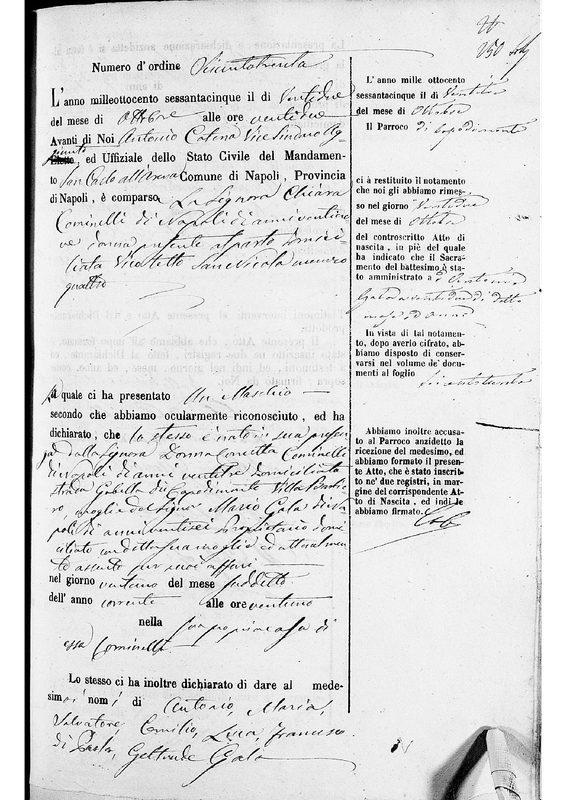 250
Numero d' ordine Seicentotrenta
L'anno milleottocento sessantacinque il di Ventidue
del mese di Ottobre alle ore ventidue
Avanti di Noi Antonio Catena Vice Sindaco Ag-
giunto, ed Uffiziale dello Stato Civile del Mandamen-
to San Carlo all'Arena Comune di Napoli, Provincia
di Napoli, è comparsa La Signora Chiara
Cominelli di Napoli di anni ventino-
ve donna presente al parto domici-
liata Vicoletto San Nicola numero
quattro
La quale ci ha presentato Un Maschio
secondo che abbiamo ocularmente riconosciuto, ed ha
dichiarato, che lo stesso è nato in sua presen-
za dalla Signora Donna Concetta Cominelli
di Napoli di anni ventitre domiciliata
Strada Gabella di Capodimonte Villa
moglie del Signor Mario Gala di Na-
poli di anni ventisei Proprietario domi-
ciliato con detta sua moglie ed attualmen-
te assente per suoi affari
nel giorno ventuno del mese suddetto
dell' anno corrente alle ore ventuno
nella casa di
essa Cominelli
Lo stesso ci ha inoltre dichiarato di dare al mede-
simo i nomi di Antonio, Maria,
Salvatore, Emilio, Luca, Francesco
di Paola, Geltrude Gala
L' anno mille ottocento
sessantacinque il di Ventidue
del mese di Ottobre
Il Parroco di Capodimonte
ci à restituito il notamento
che noi gli abbiamo rimes-
so nel giorno Ventidue
del mese di Ottobre
del controscritto Atto di
nascita, in piè del quale
ha indicato che il Sacra-
mento del battesimo è sta-
to amministrato a d'Antonio
Gala a ventidue di detto
mese ed anno
In vista di tal notamento,
dopo averlo cifrato, ab-
biamo disposto di conser-
varsi nel volume de' docu-
menti al foglio
Seicentotrenta
Abbiamo inoltre accusa-
to al Parroco anzidetto la
ricezione del medesimo, ed
abbiamo formato il presen-
te Atto, che è stato inscrit-
to ne' due registri, in mar-
gine del corrispondente At-
to di Nascita, ed indi le
abbiamo firmato.